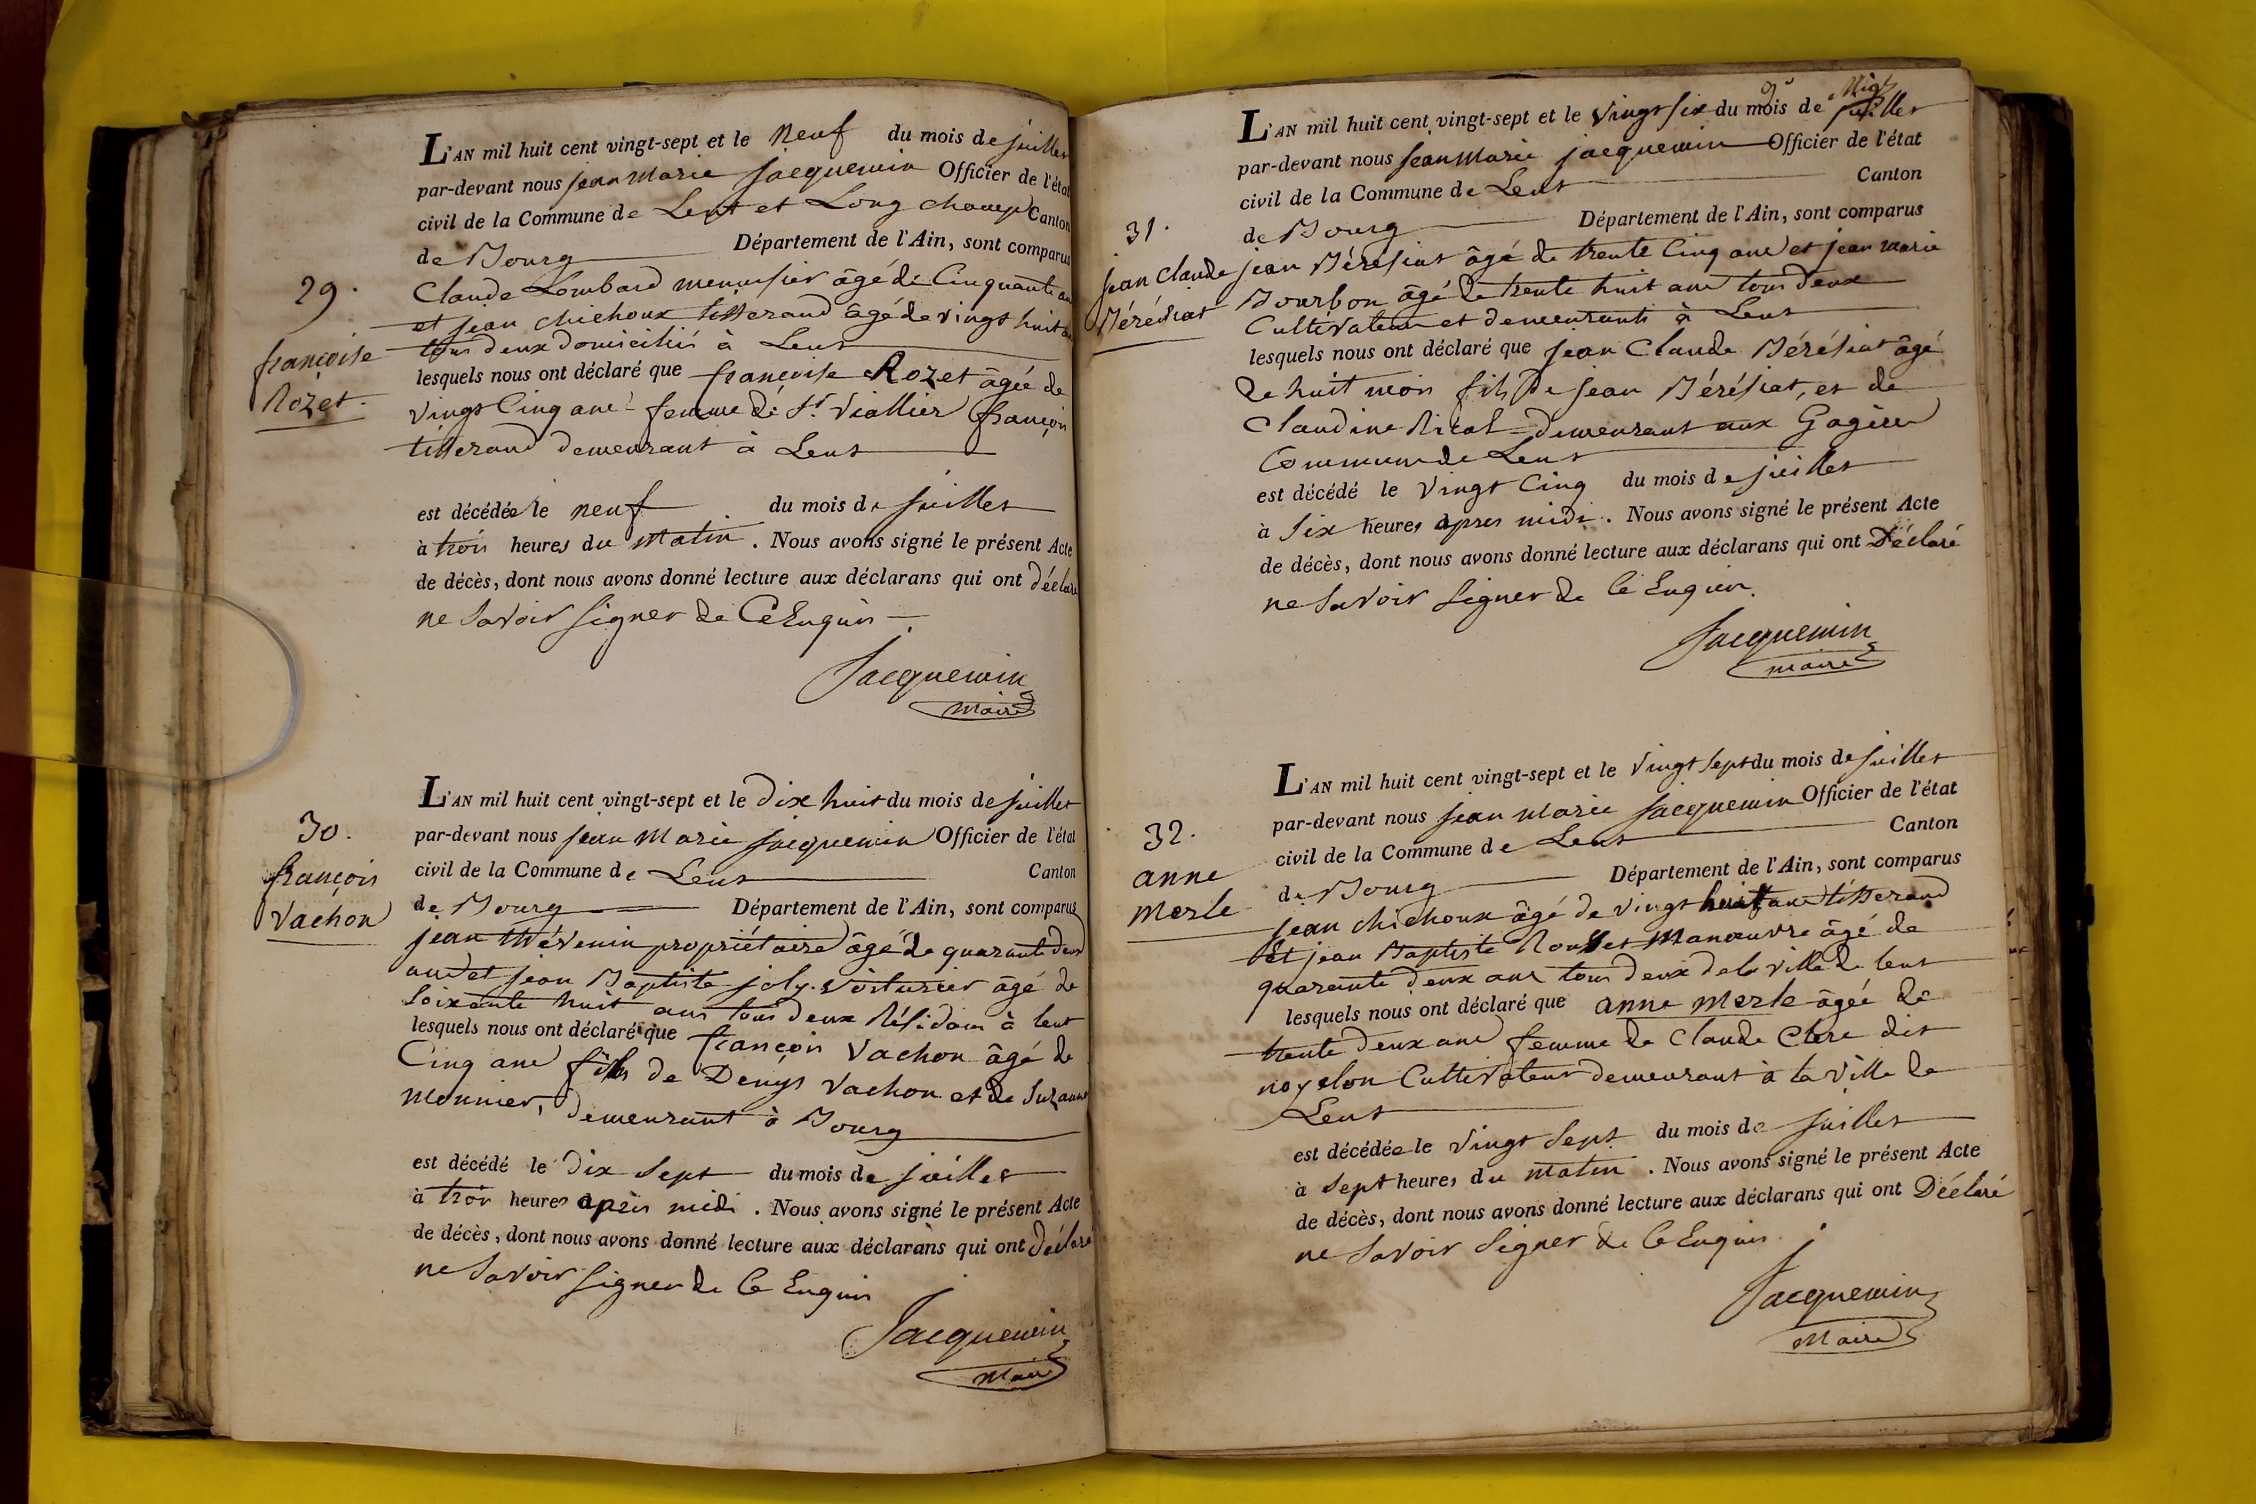 29.
françoise
Rozet.
L'AN mil huit cent vingt-sept et le neuf du mois de juillet
par-devant nous jean Marie jacquemin Officier de l'état
civil de la Commune de Lent et Long champ Canton
de Bourg Département de l'Ain, sont comparus
Claude Lombard menuisier âgé de Cinquante ans
et jean chichoux tisserand âgé de vingt huit ans
tous deux domiciliés à Lent
lesquels nous ont déclaré que françoise Rozet âgée de
vingt Cinq ans femme de Sr. Viallier françois
tisserand demeurant à Lent
est décédée le neuf du mois de juillet
à trois heures du matin. Nous avons signé le présent Acte
de décès, dont nous avons donné lecture aux déclarans qui ont déclaré
ne Savoir signer de Ce Enquis
Jacquemin
maire
30.
françois
Vachon
L'AN mil huit cent vingt-sept et le dix huit du mois de juillet
par-devant nous jean Marie jacquemin Officier de l'état
civil de la Commune de Lent Canton
de Bourg Département de l'Ain, sont comparus
jean thévenin propriétaire âgé de quarante deux
ans et jean Baptiste joly voiturier âgé de
soixante huit ans tous deux Résidans à lent
lesquels nous ont déclaré que françois Vachon âgé de
Cinq ans fils de Denys Vachon et de Suzanne
Monnier, demeurant à Bourg
est décédé le dix sept du mois de juillet
à trois heures après midi. Nous avons signé le présent Acte
de décès, dont nous avons donné lecture aux déclarans qui ont déclaré
ne Savoir signer de Ce Enquis
Jacquemin
Maire
31.
jean Claude
Béréziat
L'AN mil huit cent vingt-sept et le vingt six du mois de juillet
par-devant nous jean Marie jacquemin Officier de l'état
civil de la Commune de Lent Canton
de Bourg Département de l'Ain, sont comparus
jean Béréziat âgé de trente Cinq ans et jean marie
Bourbon âgé de trente huit ans tous deux
Cultivateurs et demeurants à Lent
lesquels nous ont déclaré que jean Claude Béréziat âgé
de huit mois fils de jean Béréziat, et de
Claudine Nicol demeurant aux Gagères
Commune de Lent
est décédé le vingt Cinq du mois de juillet
à Six heures après midi. Nous avons signé le présent Acte
de décès, dont nous avons donné lecture aux déclarans qui ont Déclaré
ne Savoir signer de Ce Enquis.
Jacquemin
maire
32.
anne
Merle
L'AN mil huit cent vingt-sept et le vingt Sept du mois de juillet
par-devant nous jean Marie jacquemin Officier de l'état
civil de la Commune de Lent Canton
de Bourg Département de l'Ain, sont comparus
jean chichoux âgé de vingt huit ans tisserand
Et jean Baptiste Rousset Manœuvre âgé de
quarante deux ans tous deux de la ville de lent
lesquels nous ont déclaré que anne merle âgée de
trente deux ans femme de Claude Clerc dit
noyelon Cultivateur demeurant à la ville de
Lent
est décédée le vingt Sept du mois de juillet
à Sept heures du matin. Nous avons signé le présent Acte
de décès, dont nous avons donné lecture aux déclarans qui ont Déclaré
ne Savoir signer de Ce Enquis.
Jacquemin
Maire